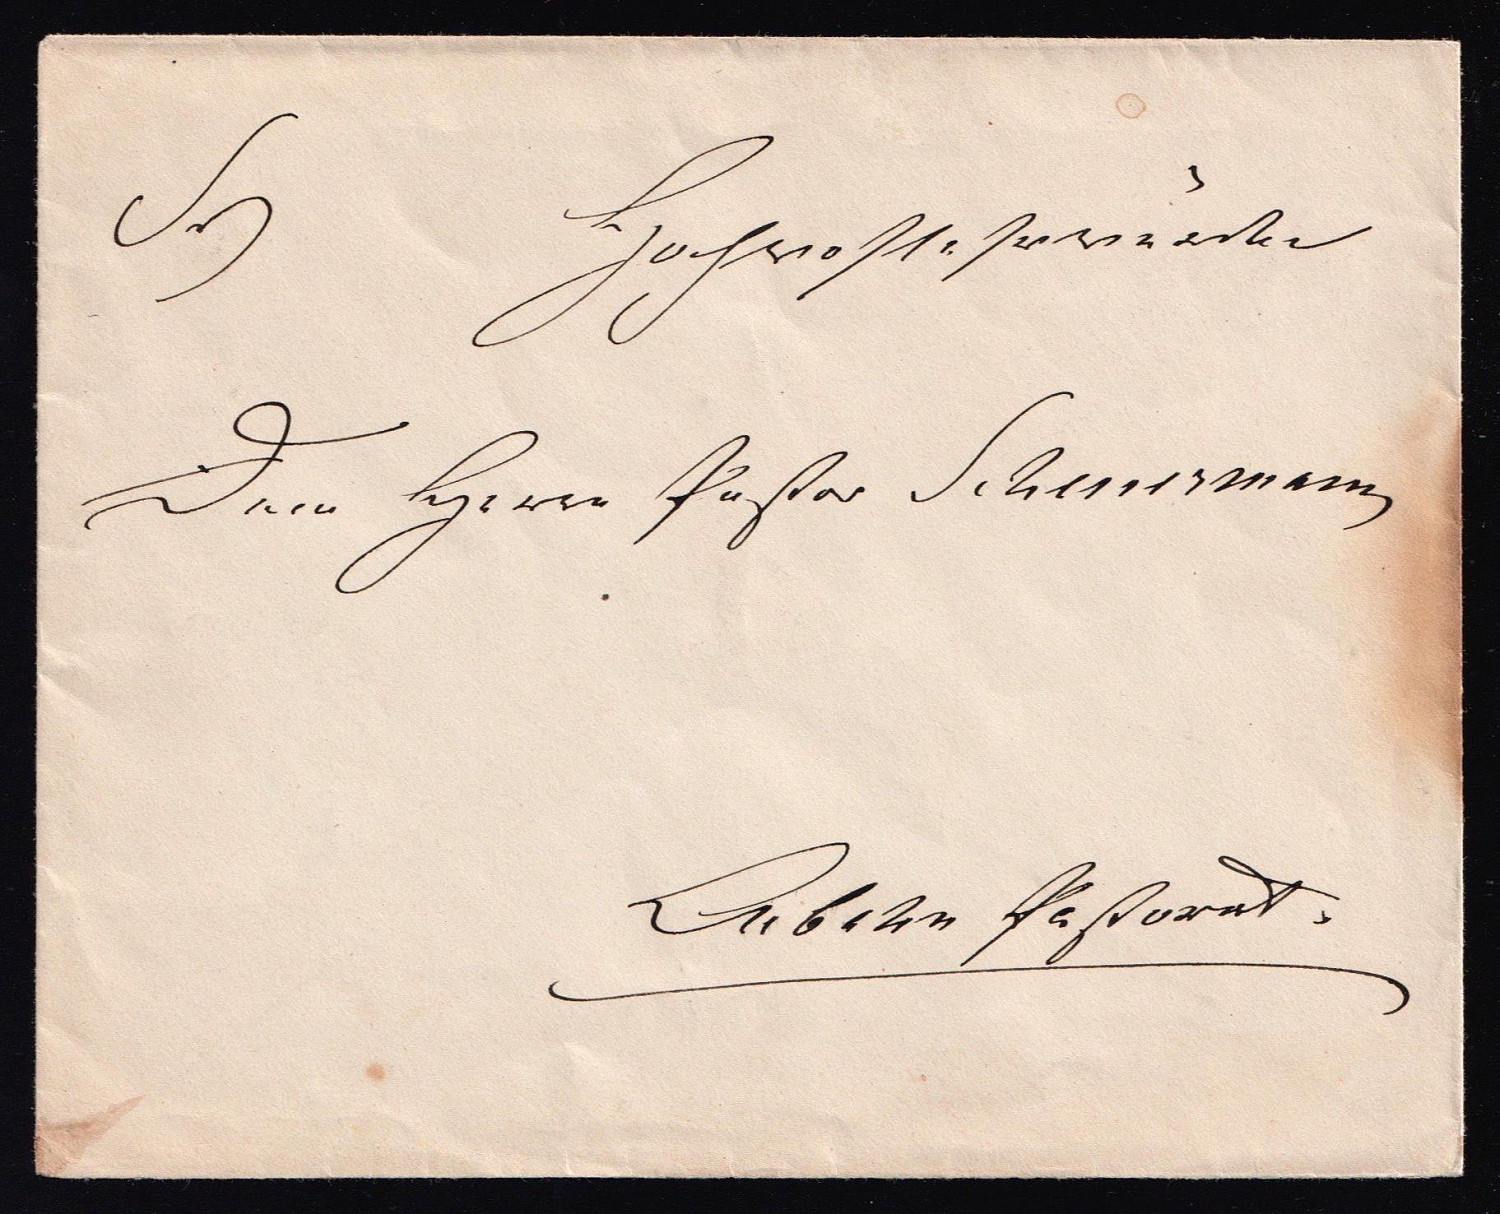 Sr Hochwohlehrwürden
Dem Herrn Pastor Scheuermann
Lubahn Pastorat.